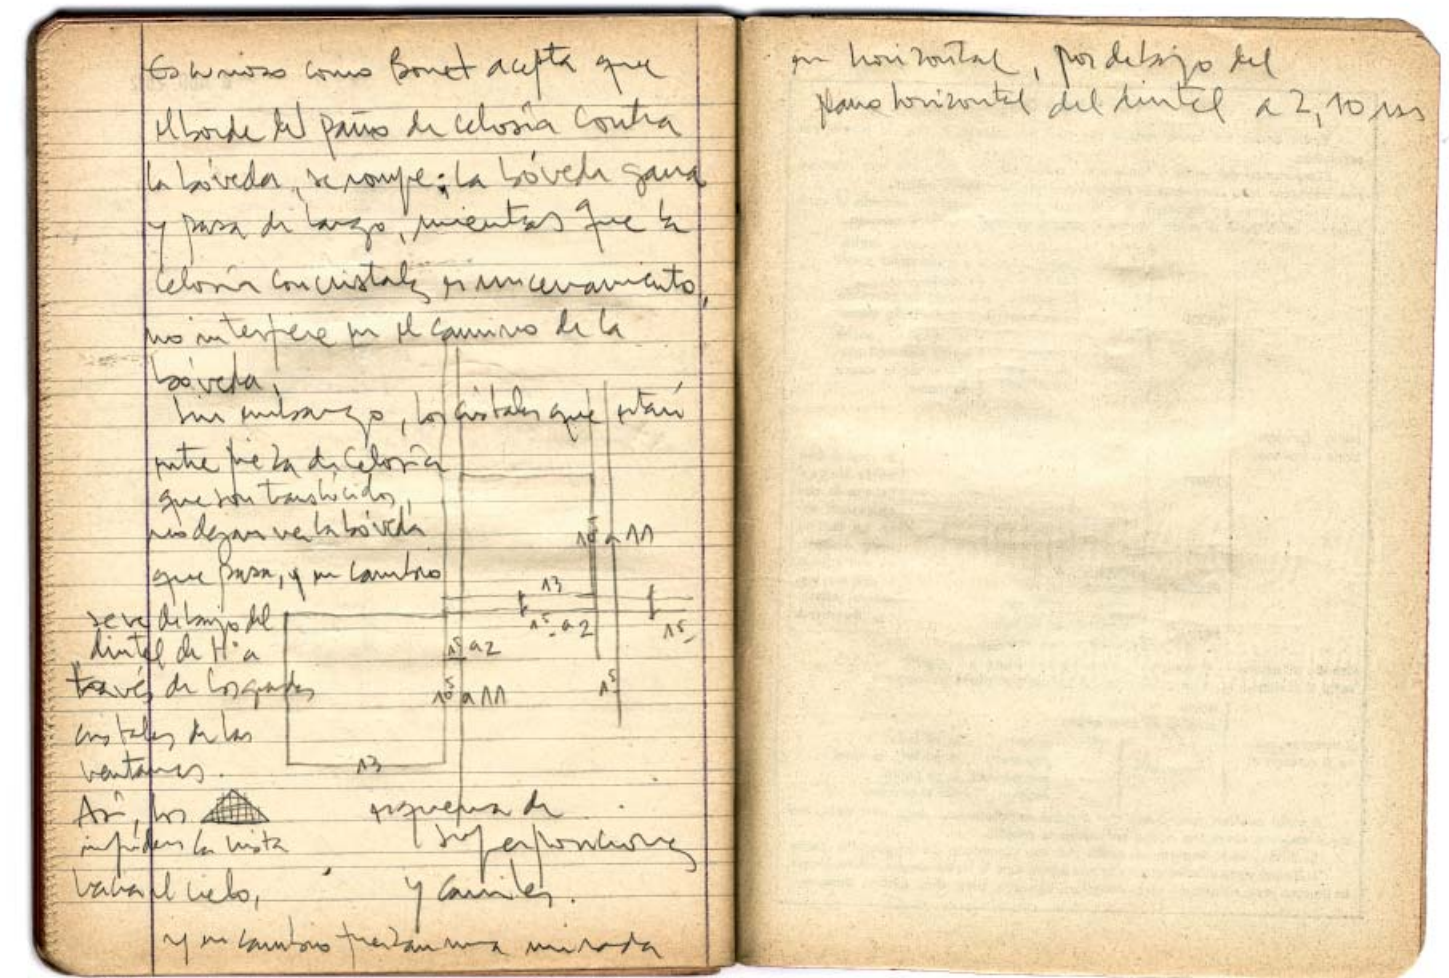 Es curioso como Bonet acepta que
el borde del paño de celosía contra
la bóveda, se rompe; la bóveda gana
y pasa de largo, mientras que la
celosía con cristales es un cerramiento,
no interfiere en el camino de la
bóveda.
Sin embargo, los cristales que están
entre pieza de celosía
que son translúcidos,
nos dejan ver la bóveda
que pasa, y en cambio
se ve debajo del
dintel de Hº a
través de los grandes
cristales de las
ventanas.
Así, los
impiden la vista
hacia el cielo,
y en cambio fuerzan una mirada
10⁵ a 11
13
1⁵ a 2
1⁵
1⁵ a 2
10⁵ a 11
1⁵
13
esquema de
superposiciones
y carriles.
en horizontal, por debajo del
plano horizontal del dintel a 2,10 ms